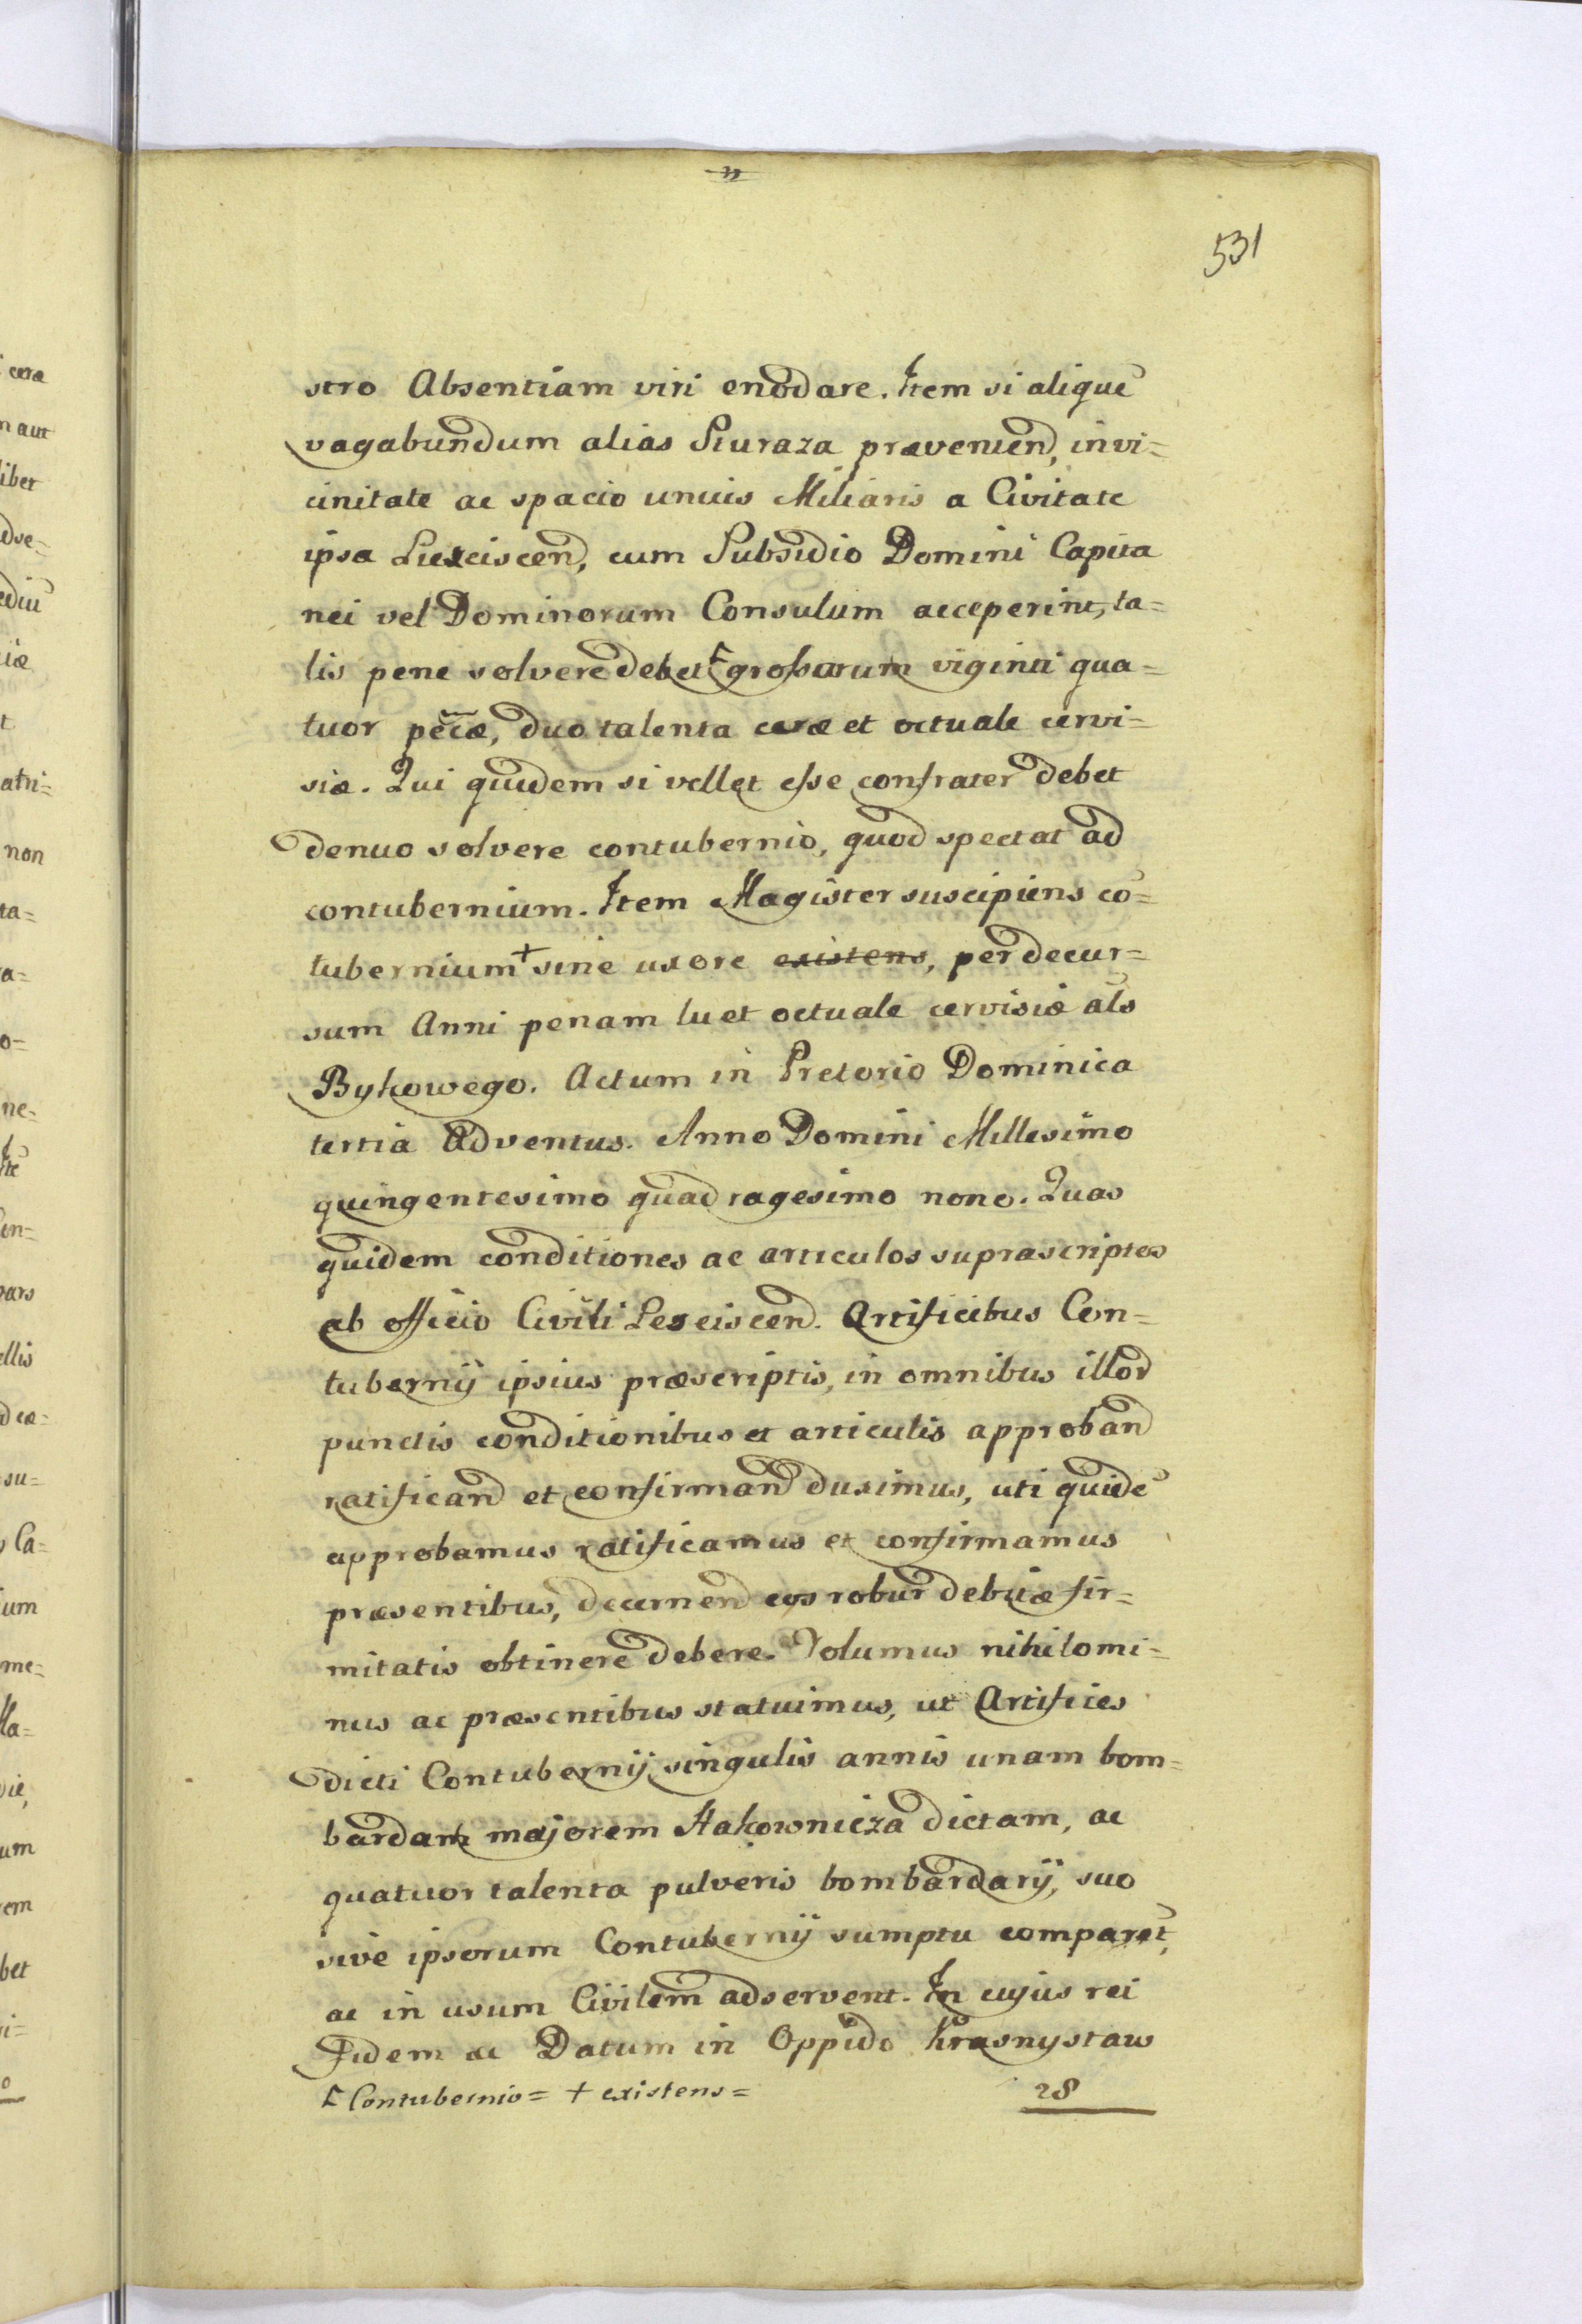 531
stro Absentiam viri enodare. Item si aliquē
vagabundum alias Siuraza prævenien, in vi=
cinitate ac spacio unius Miliaris a Civitate
ipsa cum Subsidio Domini Capita
nei vel Dominorum Consulum acceperint, ta=
lis pene solvere debet Ł grossorum viginti qua=
tuor pec̄æ, duo talenta ceræ et octuale cervi=
siæ. Qui quidem si vellet esse confrater debet
denuo solvere contubernio, quod spectat ad
contubernium. Item Magister suscipiens cō=
tubernium + sine uxore existens, per decur=
sum Anni penam luet octuale cervisiæ als
Bykowego. Actum in Pretorio Dominica
tertia Adventus. Anno Domini Millesimo
quingentesimo quadragesimo nono. Quas
quidem conditiones ac articulos suprascriptos
ab officio Civili Artificibus Con=
tubernij ipsius præscriptis, in omnibus illor
punctis conditionibus et articulis approban
ratifican et confirman duximus, uti quidē
approbamus ratificamus et confirmamus
præsentibus, decernen eos robur debitæ fir=
mitatis obtinere debere. Volumus nihilomi=
nus ac præsentibus statuimus, ut Artifices
dicti Contubernij singulis annis unam bom=
bardam majorem Hakownicza dictam, ac
quatuor talenta pulveris bombardarij, suo
sive ipsorum Contubernij sumptu comparēt,
ac in usum Civilem adservent. In cujus rei
Fidem ac Datum in Oppido Krasnystaw
Ł Contubernio = + existens =
28